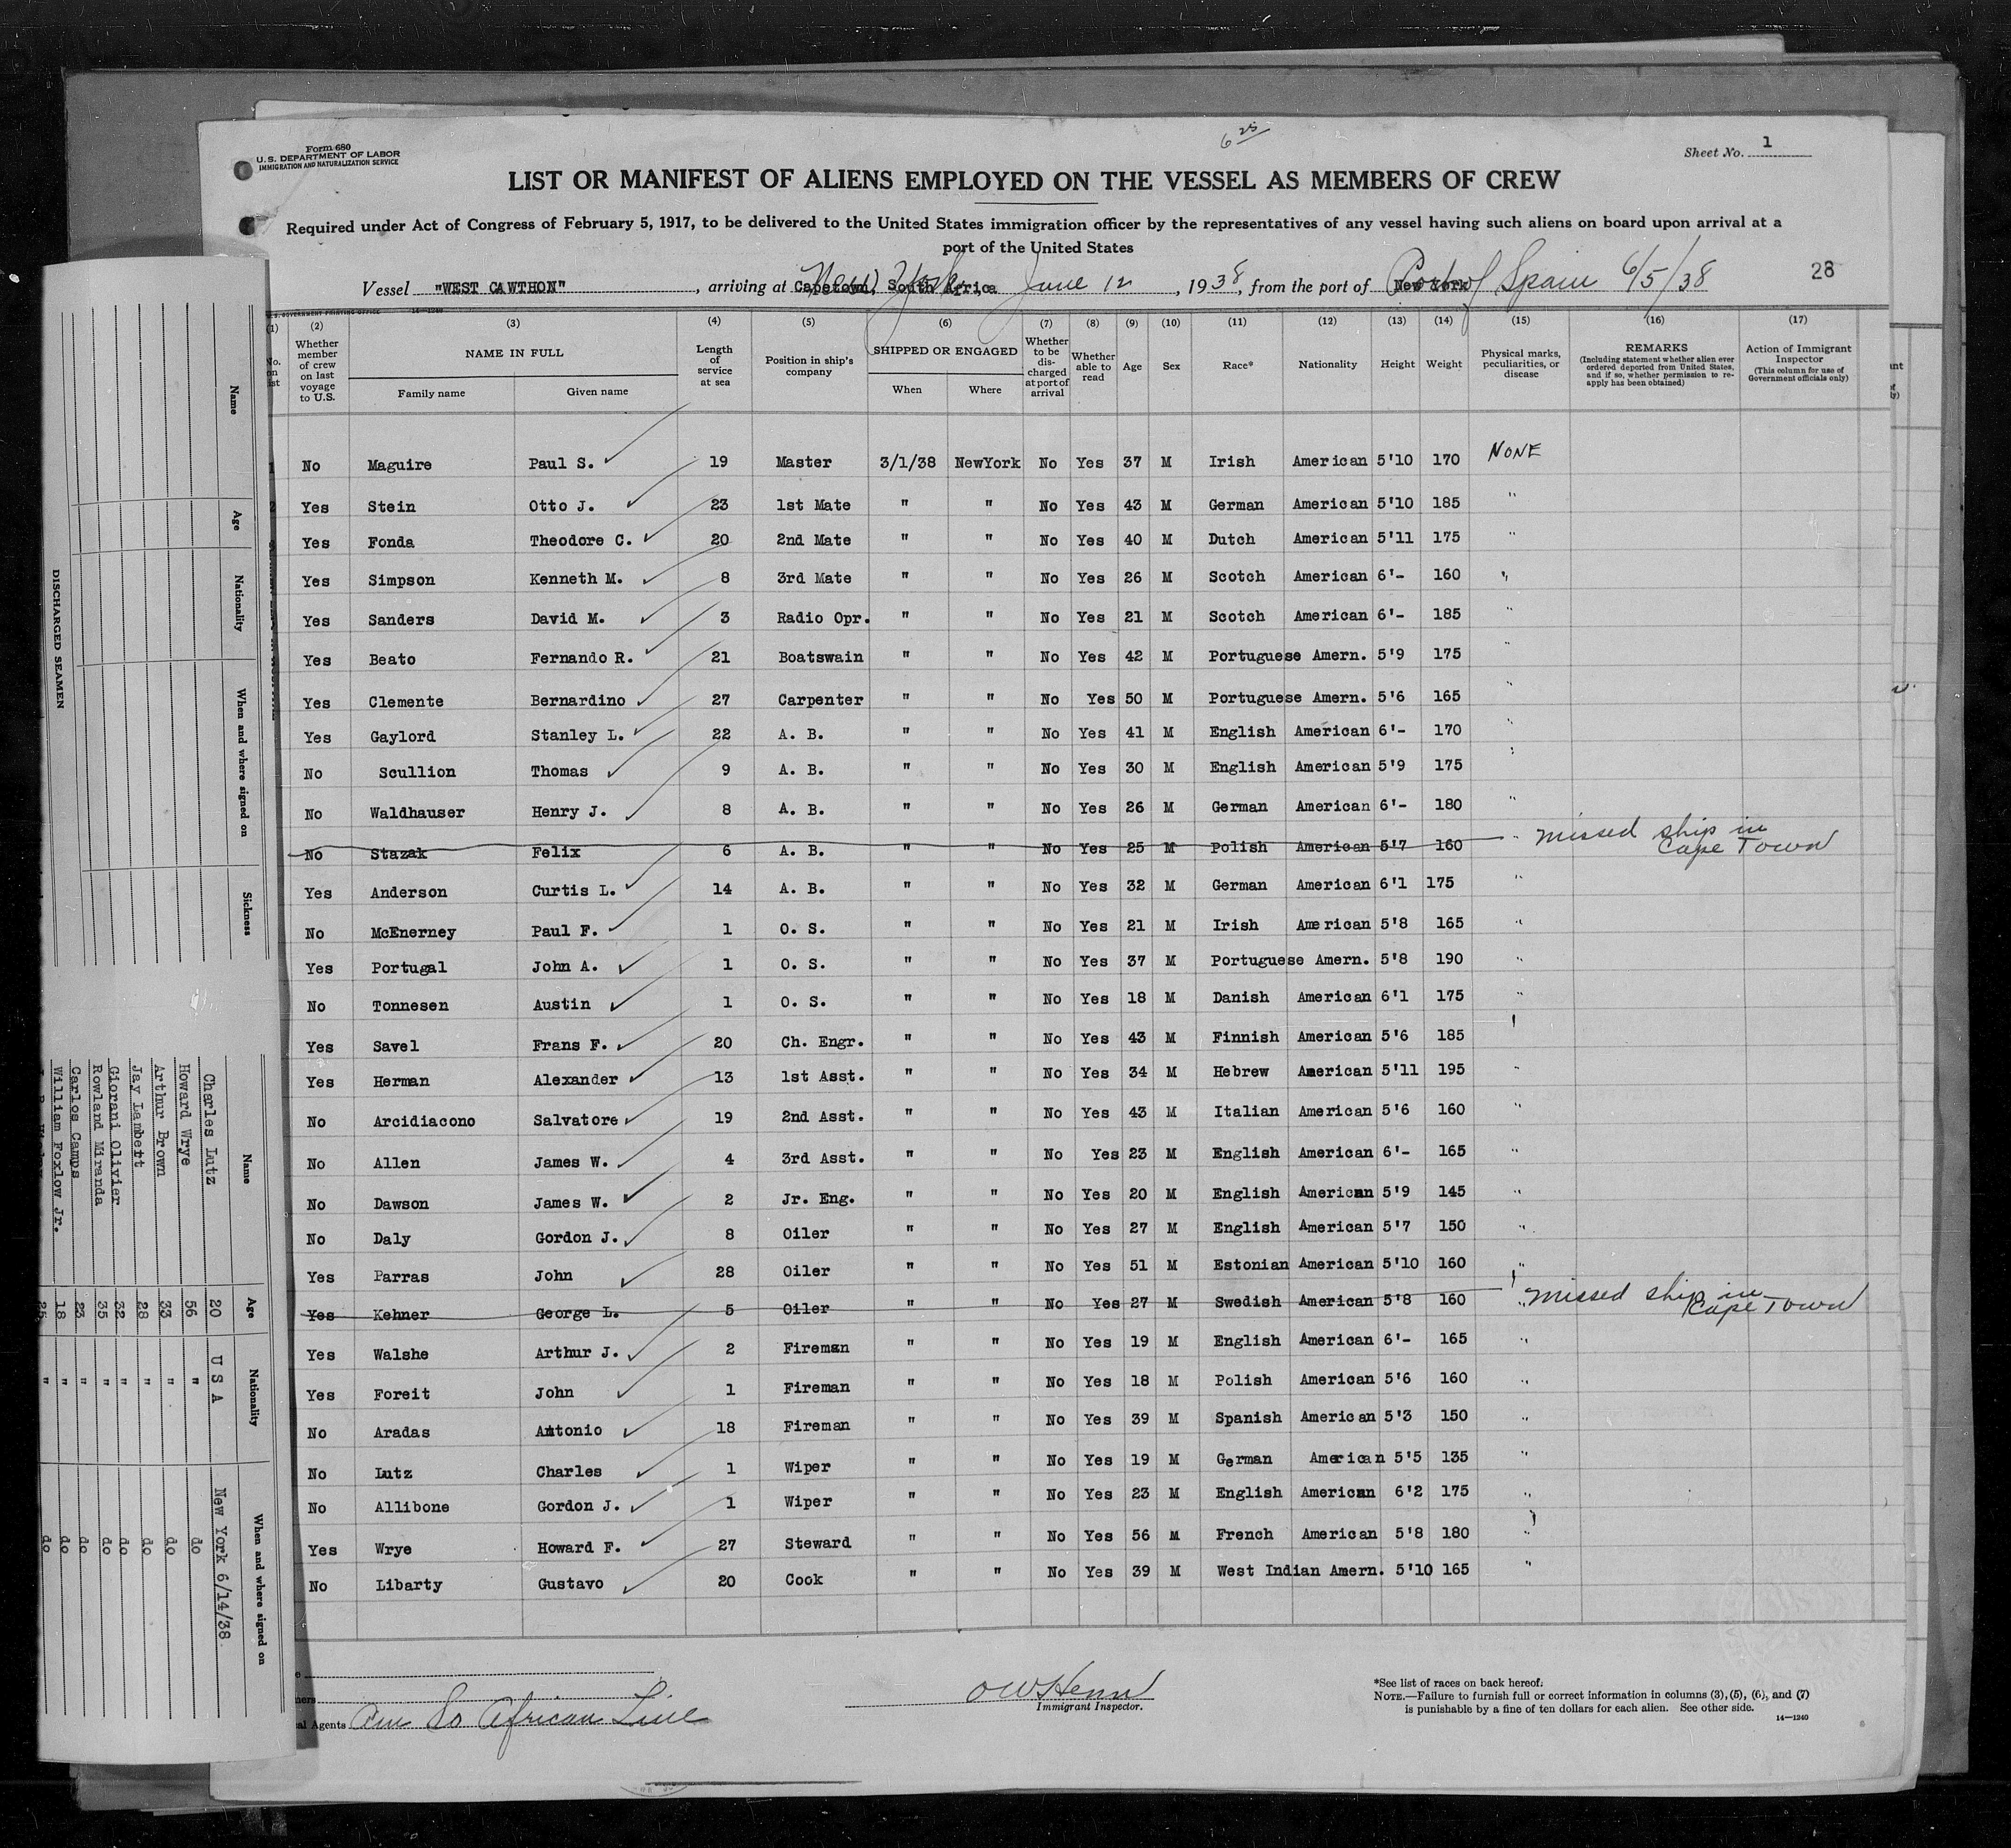 Form 680
U. S. DEPARTMENT OF LABOR
IMMIGRATION AND NATURALIZATION SERVICE
6 25
Sheet No. 1
LIST OR MANIFEST OF ALIENS EMPLOYED ON THE VESSEL AS MEMBERS OF CREW
Required under Act of Congress of February 5, 1917, to be delivered to the United States immigration officer by the representatives of any vessel having such aliens on board upon arrival at a
port of the United States
Vessel "WEST CAWTHON", arriving at Capetown, South Africa New York, June 12, 1938, from the port of New York Port of Spain 6/5/38
28
(1) (2) (3) (4) (5) (6) (7) (8) (9) (10) (11) (12) (13) (14) (15) (16) (17)
No. on list
Whether member of crew on last voyage to U.S.
NAME IN FULL
Family name
Given name
Length of service at sea
Position in ship's company
SHIPPED OR ENGAGED
When
Where
Whether to be discharged at port of arrival
Whether able to read
Age
Sex
Race*
Nationality
Height
Weight
Physical marks, peculiarities, or disease
REMARKS
(Including statement whether alien ever ordered deported from United States, and if so, whether permission to re-apply has been obtained)
Action of Immigrant Inspector
(This column for use of Government officials only)
1 No Maguire Paul S. 19 Master 3/1/38 NewYork No Yes 37 M Irish American 5'10 170 NONE
2 Yes Stein Otto J. 23 1st Mate " " No Yes 43 M German American 5'10 185 "
Yes Fonda Theodore C. 20 2nd Mate " " No Yes 40 M Dutch American 5'11 175 "
Yes Simpson Kenneth M. 8 3rd Mate " " No Yes 26 M Scotch American 6'- 160 "
Yes Sanders David M. 3 Radio Opr. " " No Yes 21 M Scotch American 6'- 185 "
Yes Beato Fernando R. 21 Boatswain " " No Yes 42 M Portuguese Amern. 5'9 175 "
Yes Clemente Bernardino 27 Carpenter " " No Yes 50 M Portuguese Amern. 5'6 165 "
Yes Gaylord Stanley L. 22 A. B. " " No Yes 41 M English American 6'- 170 "
No Scullion Thomas 9 A. B. " " No Yes 30 M English American 5'9 175 "
No Waldhauser Henry J. 8 A. B. " " No Yes 26 M German American 6'- 180 "
No Stazak Felix 6 A. B. " " No Yes 25 M Polish American 5'7 160 " missed ship in Cape Town
Yes Anderson Curtis L. 14 A. B. " " No Yes 32 M German American 6'1 175 "
No McEnerney Paul F. 1 O. S. " " No Yes 21 M Irish American 5'8 165 "
Yes Portugal John A. 1 O. S. " " No Yes 37 M Portuguese Amern. 5'8 190 "
No Tonnesen Austin 1 O. S. " " No Yes 18 M Danish American 6'1 175 "
Yes Savel Frans F. 20 Ch. Engr. " " No Yes 43 M Finnish American 5'6 185
Yes Herman Alexander 13 1st Asst. " " No Yes 34 M Hebrew American 5'11 195 "
No Arcidiacono Salvatore 19 2nd Asst. " " No Yes 43 M Italian American 5'6 160 "
No Allen James W. 4 3rd Asst. " " No Yes 23 M English American 6'- 165 "
No Dawson James W. 2 Jr. Eng. " " No Yes 20 M English American 5'9 145 "
No Daly Gordon J. 8 Oiler " " No Yes 27 M English American 5'7 150 "
Yes Parras John 28 Oiler " " No Yes 51 M Estonian American 5'10 160 "
Yes Kehner George L. 5 Oiler " " No Yes 27 M Swedish American 5'8 160 " missed ship in Cape Town
Yes Walshe Arthur J. 2 Fireman " " No Yes 19 M English American 6'- 165 "
Yes Foreit John 1 Fireman " " No Yes 18 M Polish American 5'6 160 "
No Aradas Antonio 18 Fireman " " No Yes 39 M Spanish American 5'3 150 "
No Lutz Charles 1 Wiper " " No Yes 19 M German American 5'5 135 "
No Allibone Gordon J. 1 Wiper " " No Yes 23 M English American 6'2 175 "
Yes Wrye Howard F. 27 Steward " " No Yes 56 M French American 5'8 180 "
No Libarty Gustavo 20 Cook " " No Yes 39 M West Indian Amern. 5'10 165 "
Agents Am So African Line
OW Henn
Immigrant Inspector.
*See list of races on back hereof.
NOTE.—Failure to furnish full or correct information in columns (3), (5), (6), and (7)
is punishable by a fine of ten dollars for each alien. See other side.
14—1240
DISCHARGED SEAMEN
Name Age Nationality When and where signed on Sickness
Name Age Nationality When and where signed on
Charles Lutz 20 U S A New York 6/14/38
Howard Wrye 56 " do
Arthur Brown 33 " do
Jay Lambert 28 " do
Giorani Olivier 32 " do
Rowland Miranda 35 " do
Carlos Camps 23 " do
William Foxlow Jr. 18 " do
25 " do